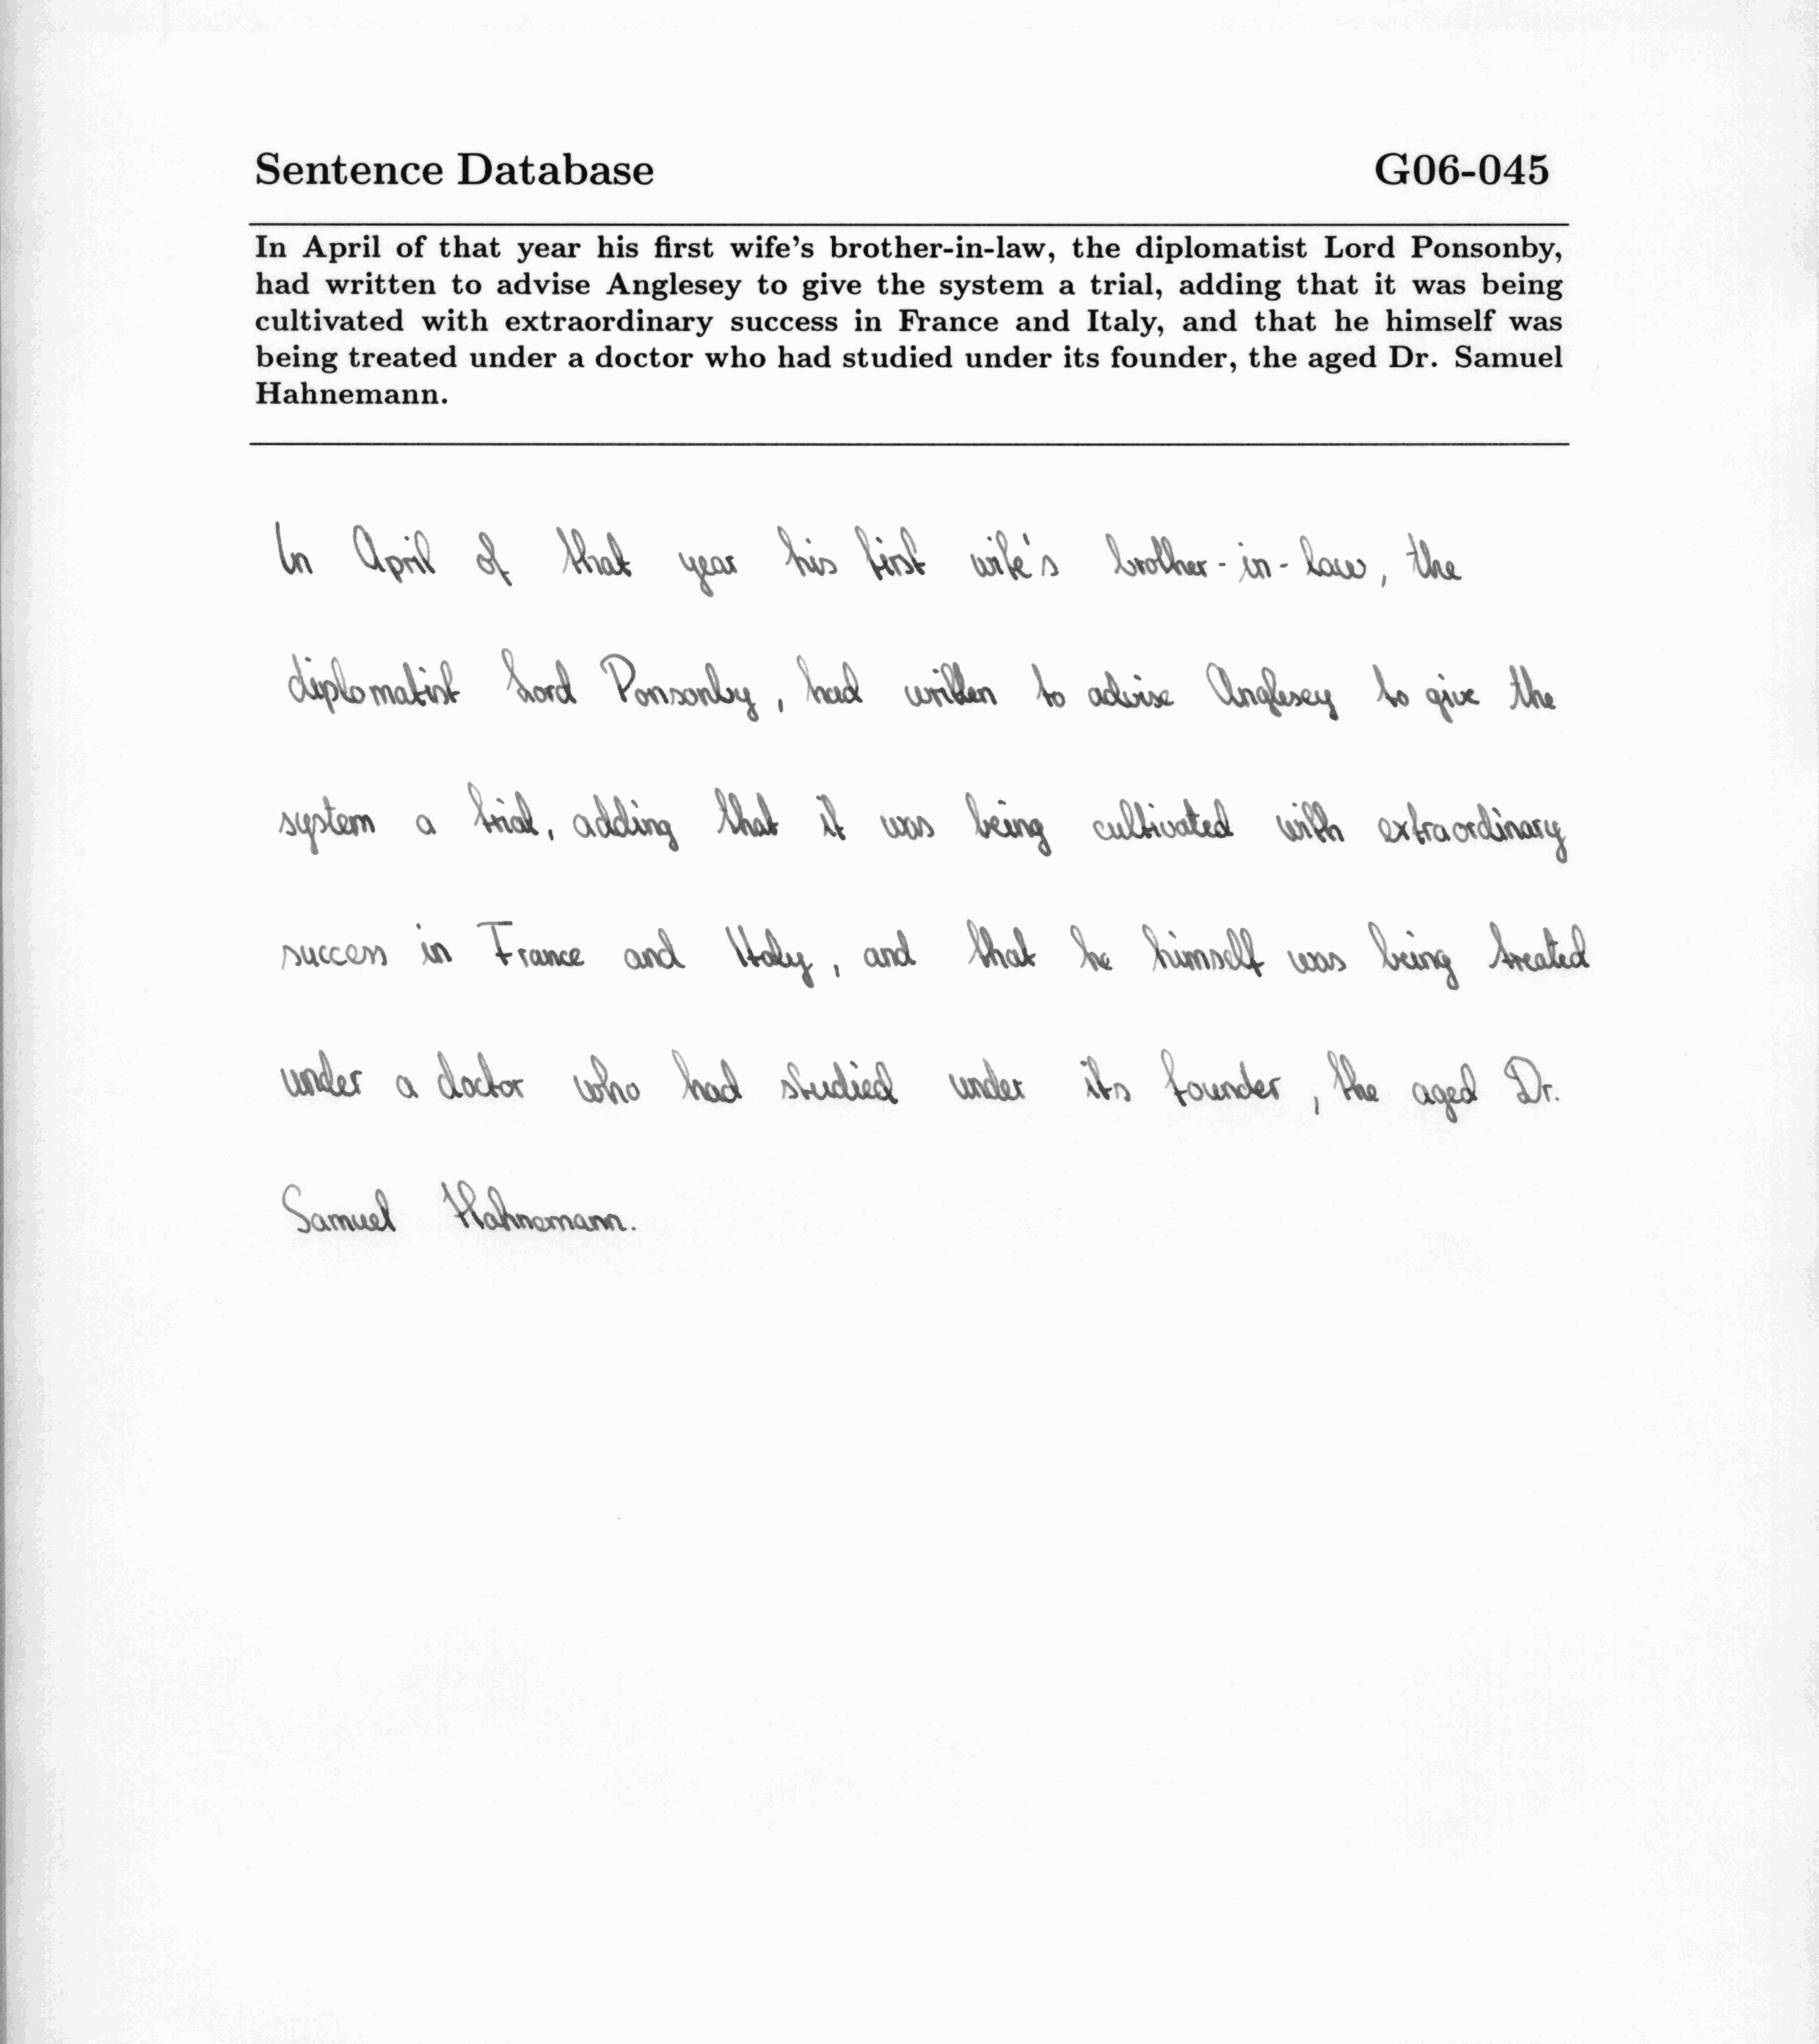 Sentence Database G06-045
In April of that year his first wife's brother-in-law, the diplomatist Lord Ponsonby,
had written to advise Anglesey to give the system a trial, adding that it was being
cultivated with extraordinary success in France and Italy, and that he himself was
being treated under a doctor who had studied under its founder, the aged Dr. Samuel
Hahnemann.
In April of that year his first wife's brother-in-law, the
diplomatist Lord Ponsonby, had written to advise Anglesey to give the
system a trial, adding that it was being cultivated with extraordinary
success in France and Italy, and that he himself was being treated
under a doctor who had studied under its founder, the aged Dr.
Samuel Hahnemann.